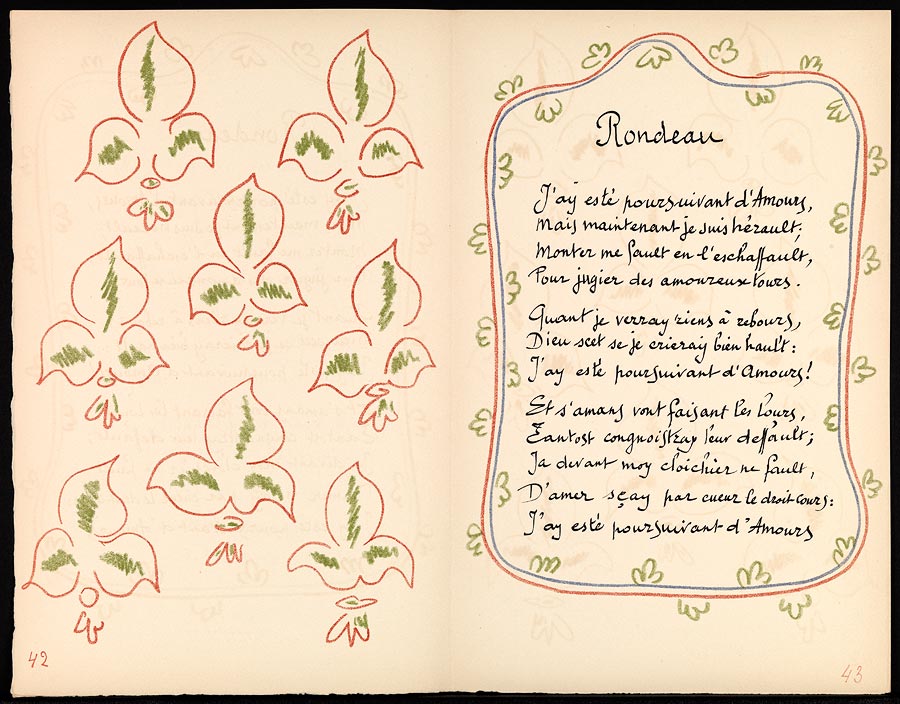 42
Rondeau
J'ay esté poursuivant d'Amours,
Mais maintenant je suis hérault;
Monter me fault en l'eschaffault,
Pour jugier des amoureux tours.
Quant je verray riens à rebours,
Dieu scet se je crieray bien hault:
J'ay esté poursuivant d'Amours!
Et s'amans vont faisant les lours,
Tantost congnoistray leur deffault;
Ja devant moy cloichier ne fault,
D'amer sçay par cueur le droit cours:
J'ay esté poursuivant d'Amours
43